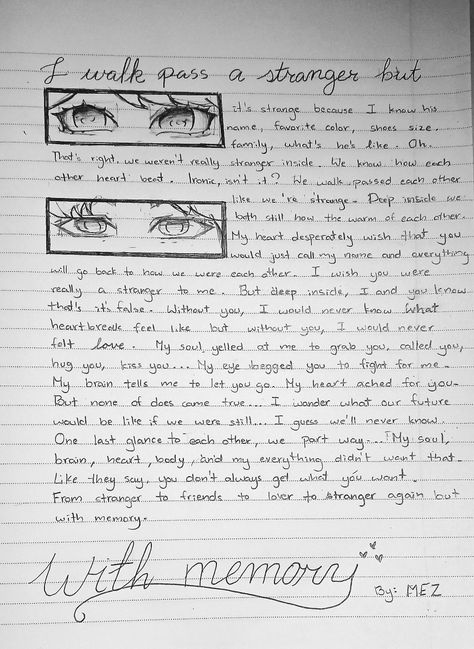 I walk pass a stranger but
it's strange because I know his
name, favorite color, shoes size.
family, what's he's like. Oh.
That's right we weren't really stranger inside. We know how each
other heart beat. Ironic, isn't it? We walk passed each other
like we're strange. Deep inside we
both still how the warm of each other.
My heart desperately wish that you
would just call my name and everything
will go back to how we were each other. I wish you were
really a stranger to me. But deep inside, I and you know
that's it's false. Without you, I would never know what
heartbreak feel like but without you, I would never
felt love. My soul yelled at me to grab you, called you,
hug you, kiss you... My eye begged you to fight for me.
My brain tells me to let you go. My heart ached for you.
But none of does came true... I wonder what our future
would be like if we were still... I guess we'll never know.
One last glance to each other, we part way... My soul,
brain, heart, body, and my everything didn't want that.
Like they say, you don't always get what you want.
From stranger to friends to lover to stranger again but
with memory.
With memory
By: MEZ